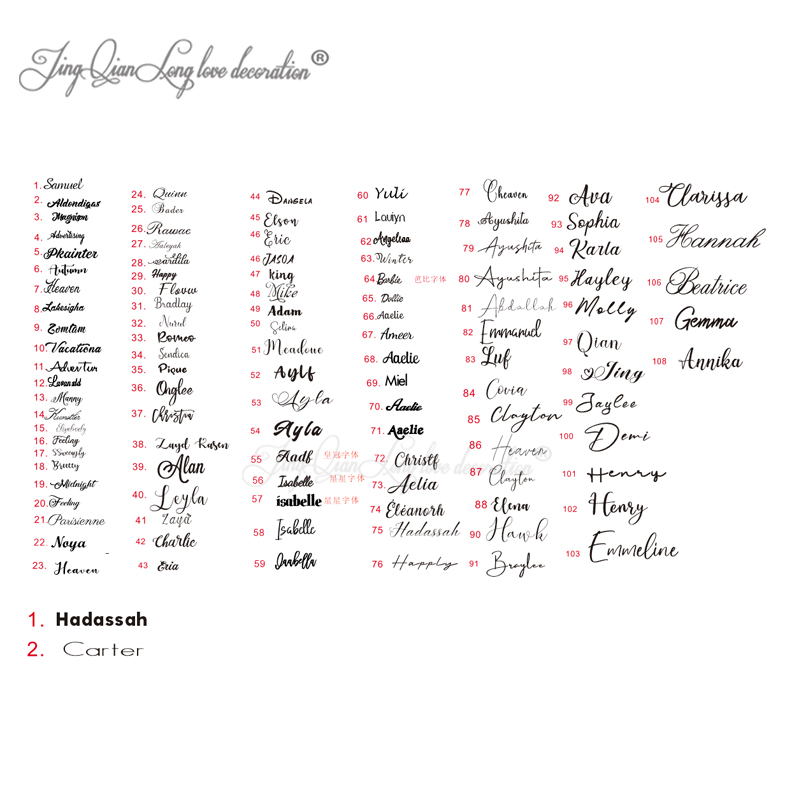 Jing Qian Long love decoration®
1. Samuel
2. Aldondigas
3. Magnism
4. Advertising
5. Pkainter
6. Autumn
7. Heaven
8. Lakesigha
9. Zomtam
10. Vacationa
11. Advertur
12.
13. Manny
14.
15.
16. Feeling
17.
18. Breezy
19. Midnight
20. Feeling
21. Parisienne
22. Noya
23. Heaven
24. Quinn
25. Bader
26. Rawac
27. Aaliyah
28.
29. Happy
30. Flovw
31. Bradlay
32. Nurul
33. Romeo
34. Sendica
35. Pique
36. Onglee
37. Christra
38. Zayd Rasen
39. Alan
40. Leyla
41 Zaya
42 Charlie
43 Eria
44 Dangela
45 Elson
46 Eric
46 JASOA
47 king
48 Mike
49 Adam
50 Selina
51 Meadowe
52 Aylf
53 Ayla
54 Ayla
55 Aadf 皇冠字体
56 Isabelle 星星字体
57 isabelle 星星字体
58 Isabelle
59 Isabella
60 Yuli
61 Lauiyn
62 Angeliee
63. Winter
64 Barbie 芭比字体
65. Dollie
66. Aaelie
67. Ameer
68. Aaelie
69. Miel
70. Aaelie
71. Aaelie
72. Christf
73. Aelia
74 Éléanorh
75 Hadassah
76 Happly
77 Cheaven
78 Ayushita
79 Ayushita
80 Ayushita
81 Abdallah
82 Emmanud
83 Luf
84 Covia
85 Clayton
86 Heaven
87 Clayton
88 Elena
90 Hawk
91 Braylee
92 Ava
93 Sophia
94 Karla
95 Hayley
96 Molly
97 Qian
98 Jing
99 Jaylee
100 Demi
101 Henry
102 Henry
103 Emmeline
104 Clarissa
105 Hannah
106 Beatrice
107 Gemma
108 Annika
Jing Qian Long love decoration®
1. Hadassah
2. Carter